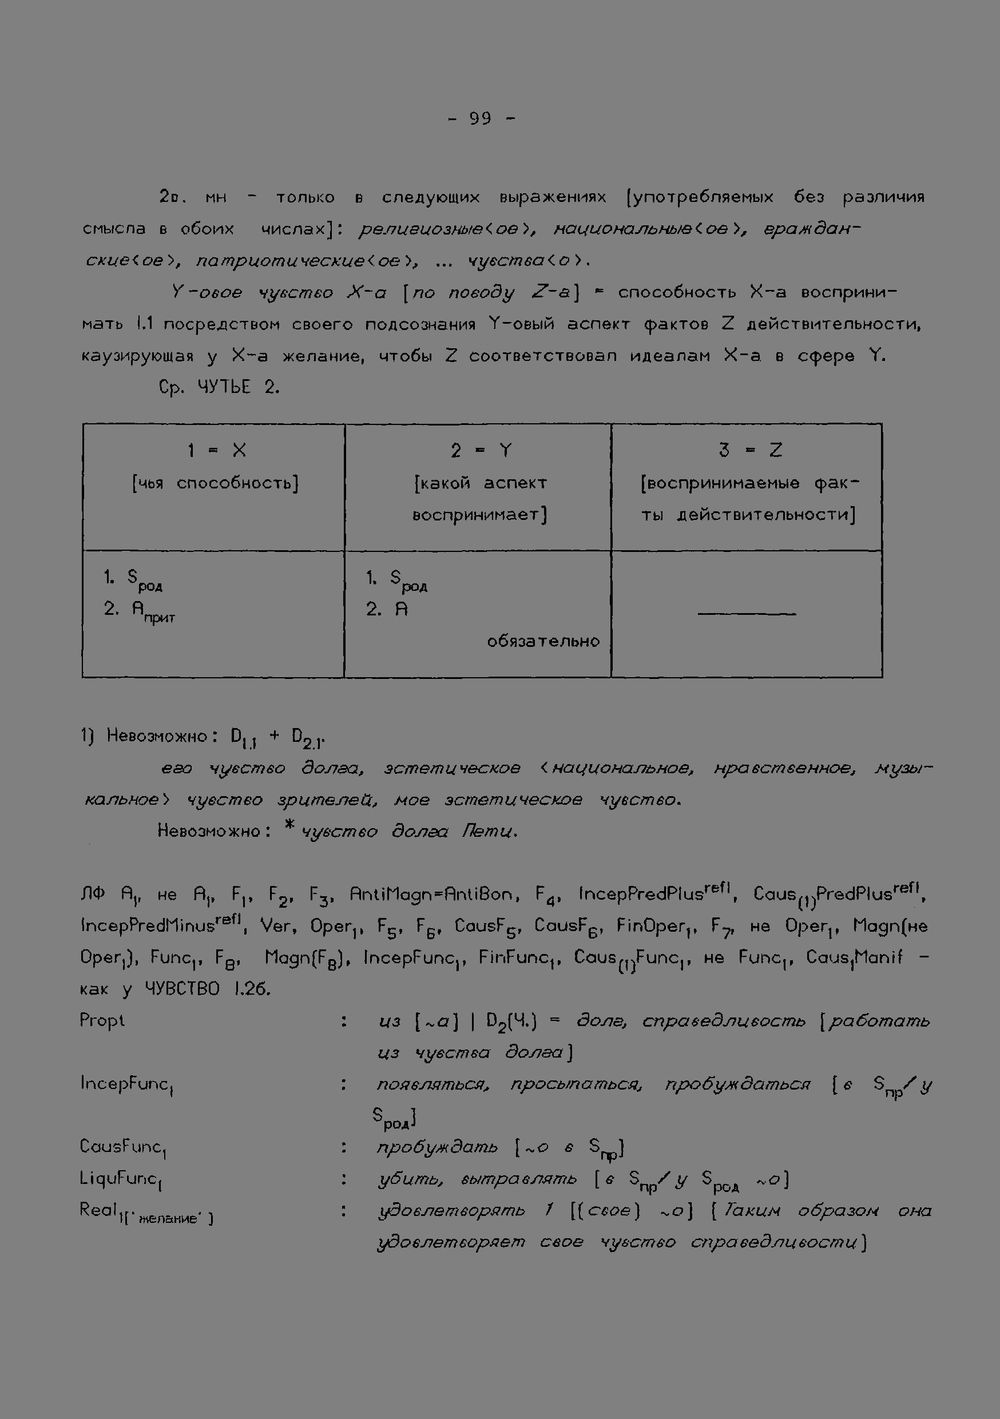 - 99 -
2в. мн - только в следующих выражениях [употребляемых без различия
смысла в обоих числах]: религиозные<ое>, национальные<ое>, граждан-
ские<ое>, патриотические<ое>, ... чувства<о>.
Y-овое чувство X-а [по поводу Z-а] = способность X-а восприни-
мать I.1 посредством своего подсознания Y-овый аспект фактов Z действительности,
каузирующая у X-а желание, чтобы Z соответствовал идеалам X-а в сфере Y.
Ср. ЧУТЬЕ 2.
1 = X
[чья способность]
2 = Y
[какой аспект
воспринимает]
3 = Z
[воспринимаемые фак-
ты действительности]
1. Sрод
2. Aприт
1. Sрод
2. A
обязательно
1) Невозможно: D1.1 + D2.1.
его чувство долга, эстетическое <национальное, нравственное, музы-
кальное> чувство зрителей, мое эстетическое чувство.
Невозможно: *чувство долга Пети.
ЛФ A1, не A1, F1, F2, F3, AntiMagn=AntiBon, F4, IncepPredPlusrefl, Caus(1)PredPlusrefl,
IncepPredMinusrefl, Ver, Oper1, F5, F6, CausF5, CausF6, FinOper1, F7, не Oper1, Magn(не
Oper1), Func1, F8, Magn(F8), IncepFunc1, FinFunc1, Caus(1)Func1, не Func1, Caus1Manif -
как у ЧУВСТВО I.2б.
Propt : из [~а] | D2(Ч.) = долг, справедливость [работать
из чувства долга]
IncepFunc1 : появляться, просыпаться, пробуждаться [в Sпр/у
Sрод]
CausFunc1 : пробуждать [~о в Sпр]
LiquFunc1 : убить, вытравлять [в Sпр/у Sрод ~о]
Real1['желание'] : удовлетворять 1 [(свое) ~о] [Таким образом она
удовлетворяет свое чувство справедливости]